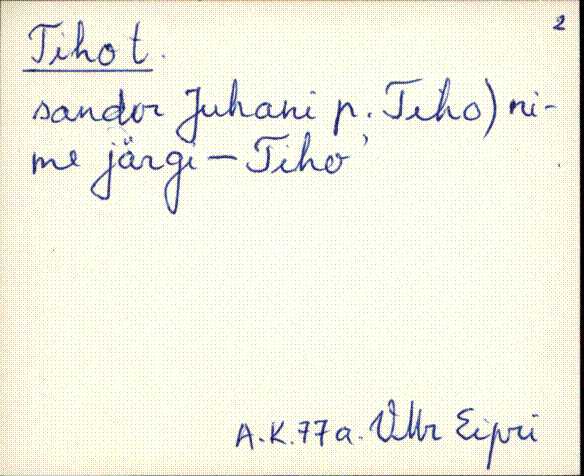 2
Tiho t.
sandor Juhani p. Tiho) ni-
me järgi – Tiho'
A.K. 77a. VMr Eipri